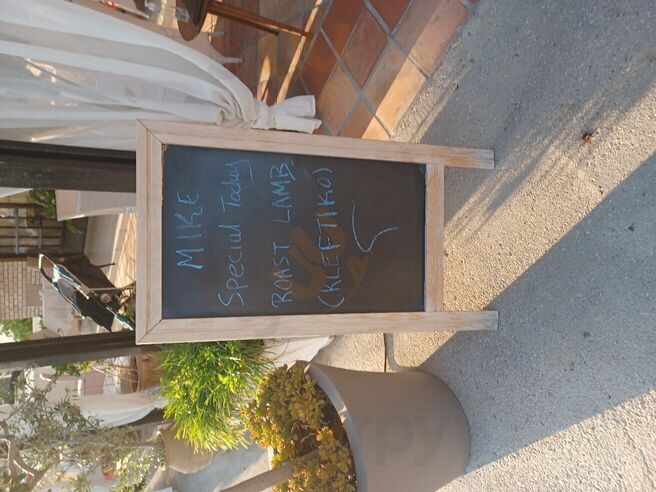 MIKE
Special Today
ROAST LAMB
(KLEFTIKO)